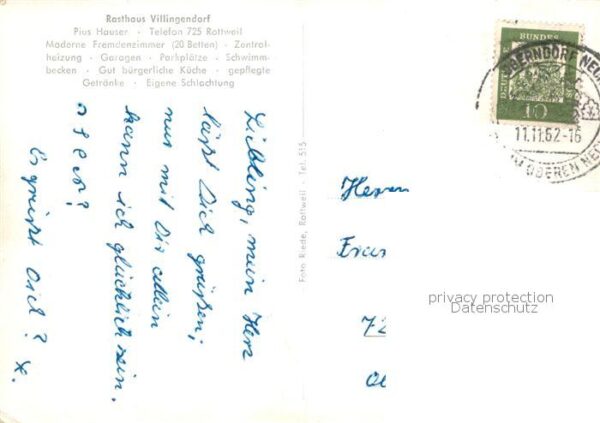 Rasthaus Villingendorf
Pius Hauser · Telefon 725 Rottweil
Moderne Fremdenzimmer (20 Betten) · Zentral-
heizung · Garagen · Parkplätze · Schwimm-
becken · Gut bürgerliche Küche · gepflegte
Getränke · Eigene Schlachtung
Liebling, mein Herz
läßt Dich grüßen,
nur mit Dir allein
kann ich glücklich sein.
oder?
Es grüßt Dich? X.
Foto Riede, Rottweil · Tel. 515
DEUTSCHE
BUNDES
10
OBERNDORF
11.11.62-16
OBEREN
Herrn
72
privacy protection
Datenschutz